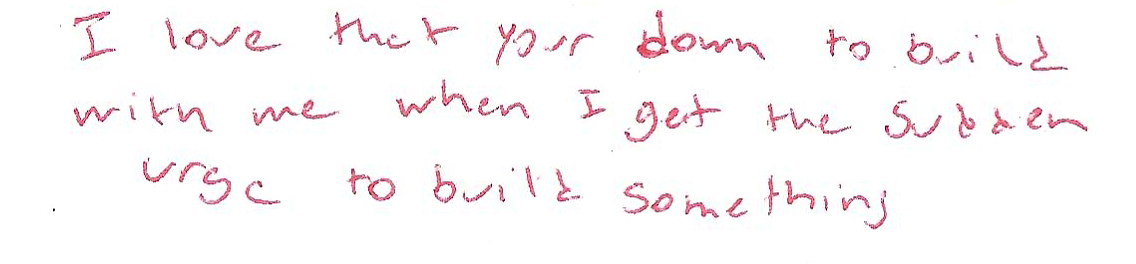 I love that your down to build
with me when I get the sudden
urge to build something